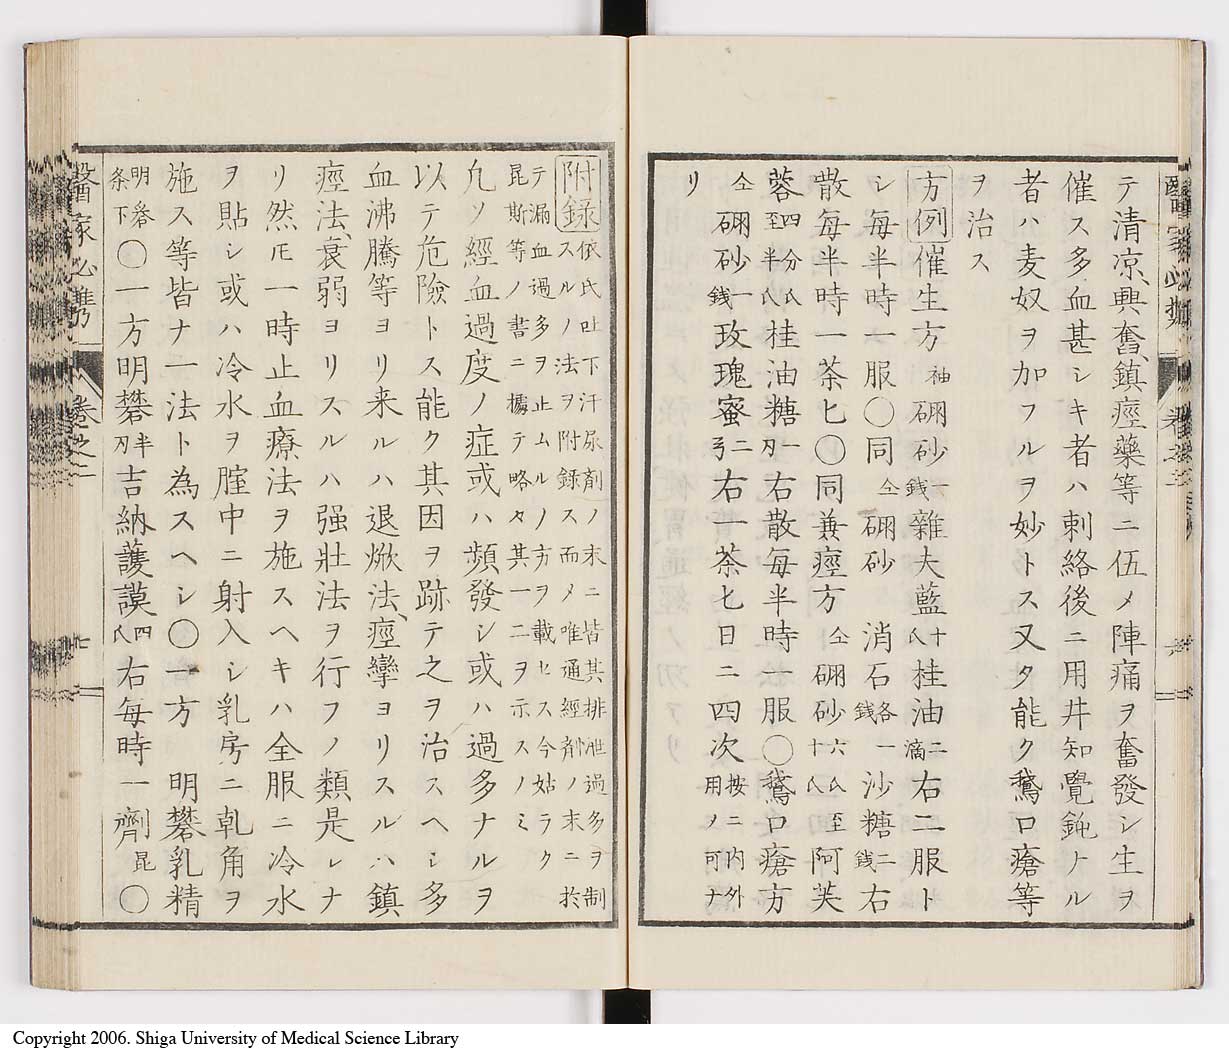 テ清凉、興奮、鎮痙藥等ニ伍メ陣痛ヲ奮發シ生ヲ
催ス多血甚シキ者ハ刺絡後ニ用井知覺鈍ナル
者ハ麦奴ヲ加フルヲ妙トス又タ能ク鵞口瘡等
ヲ治ス
方例 催生方 袖 硼砂 一錢 雜夫藍 十氏 桂油 二滴 右二服ト
シ毎半時一服〇同 仝 硼砂 消石 各一錢 沙糖 二錢 右
散毎半時一茶匕〇同兼痙方 仝 硼砂 六氏至十氏 阿芙
蓉 四分氏至半氏 桂油糖 一刄 右散毎半時一服〇鵞口瘡方
仝 硼砂 一錢 玫瑰蜜 二弓 右一茶七日ニ四次 按ニ内外用メ可ナ
リ
附録 依氏吐下汗尿劑ノ末ニ皆其排泄過多ヲ制
スルノ法ヲ附録ス而メ唯通經劑ノ末ニ於
テ漏血過多ヲ止ムルノ方ヲ載ヒス今姑ラク
昆斯等ノ書ニ據テ略々其一二ヲ示スノミ
凢ソ經血過度ノ症或ハ頻發シ或ハ過多ナルヲ
以テ危險トス能ク其因ヲ跡テ之ヲ治スヘシ多
血沸騰等ヨリ来ルハ退焮法、痙攣ヨリスルハ鎮
痙法、衰弱ヨリスルハ强壯法ヲ行フノ類是レナ
リ然𪜈一時止血療法ヲ施スヘキハ全服ニ冷水
ヲ貼シ或ハ冷水ヲ腟中ニ射入シ乳房ニ乹角ヲ
施ス等皆ナ一法ト為スヘシ〇一方 明礬乳精
明礬条下 〇一方明礬 半刄 吉納護謨 四氏 右毎時一劑 昆 〇
醫家必携
卷之二
七